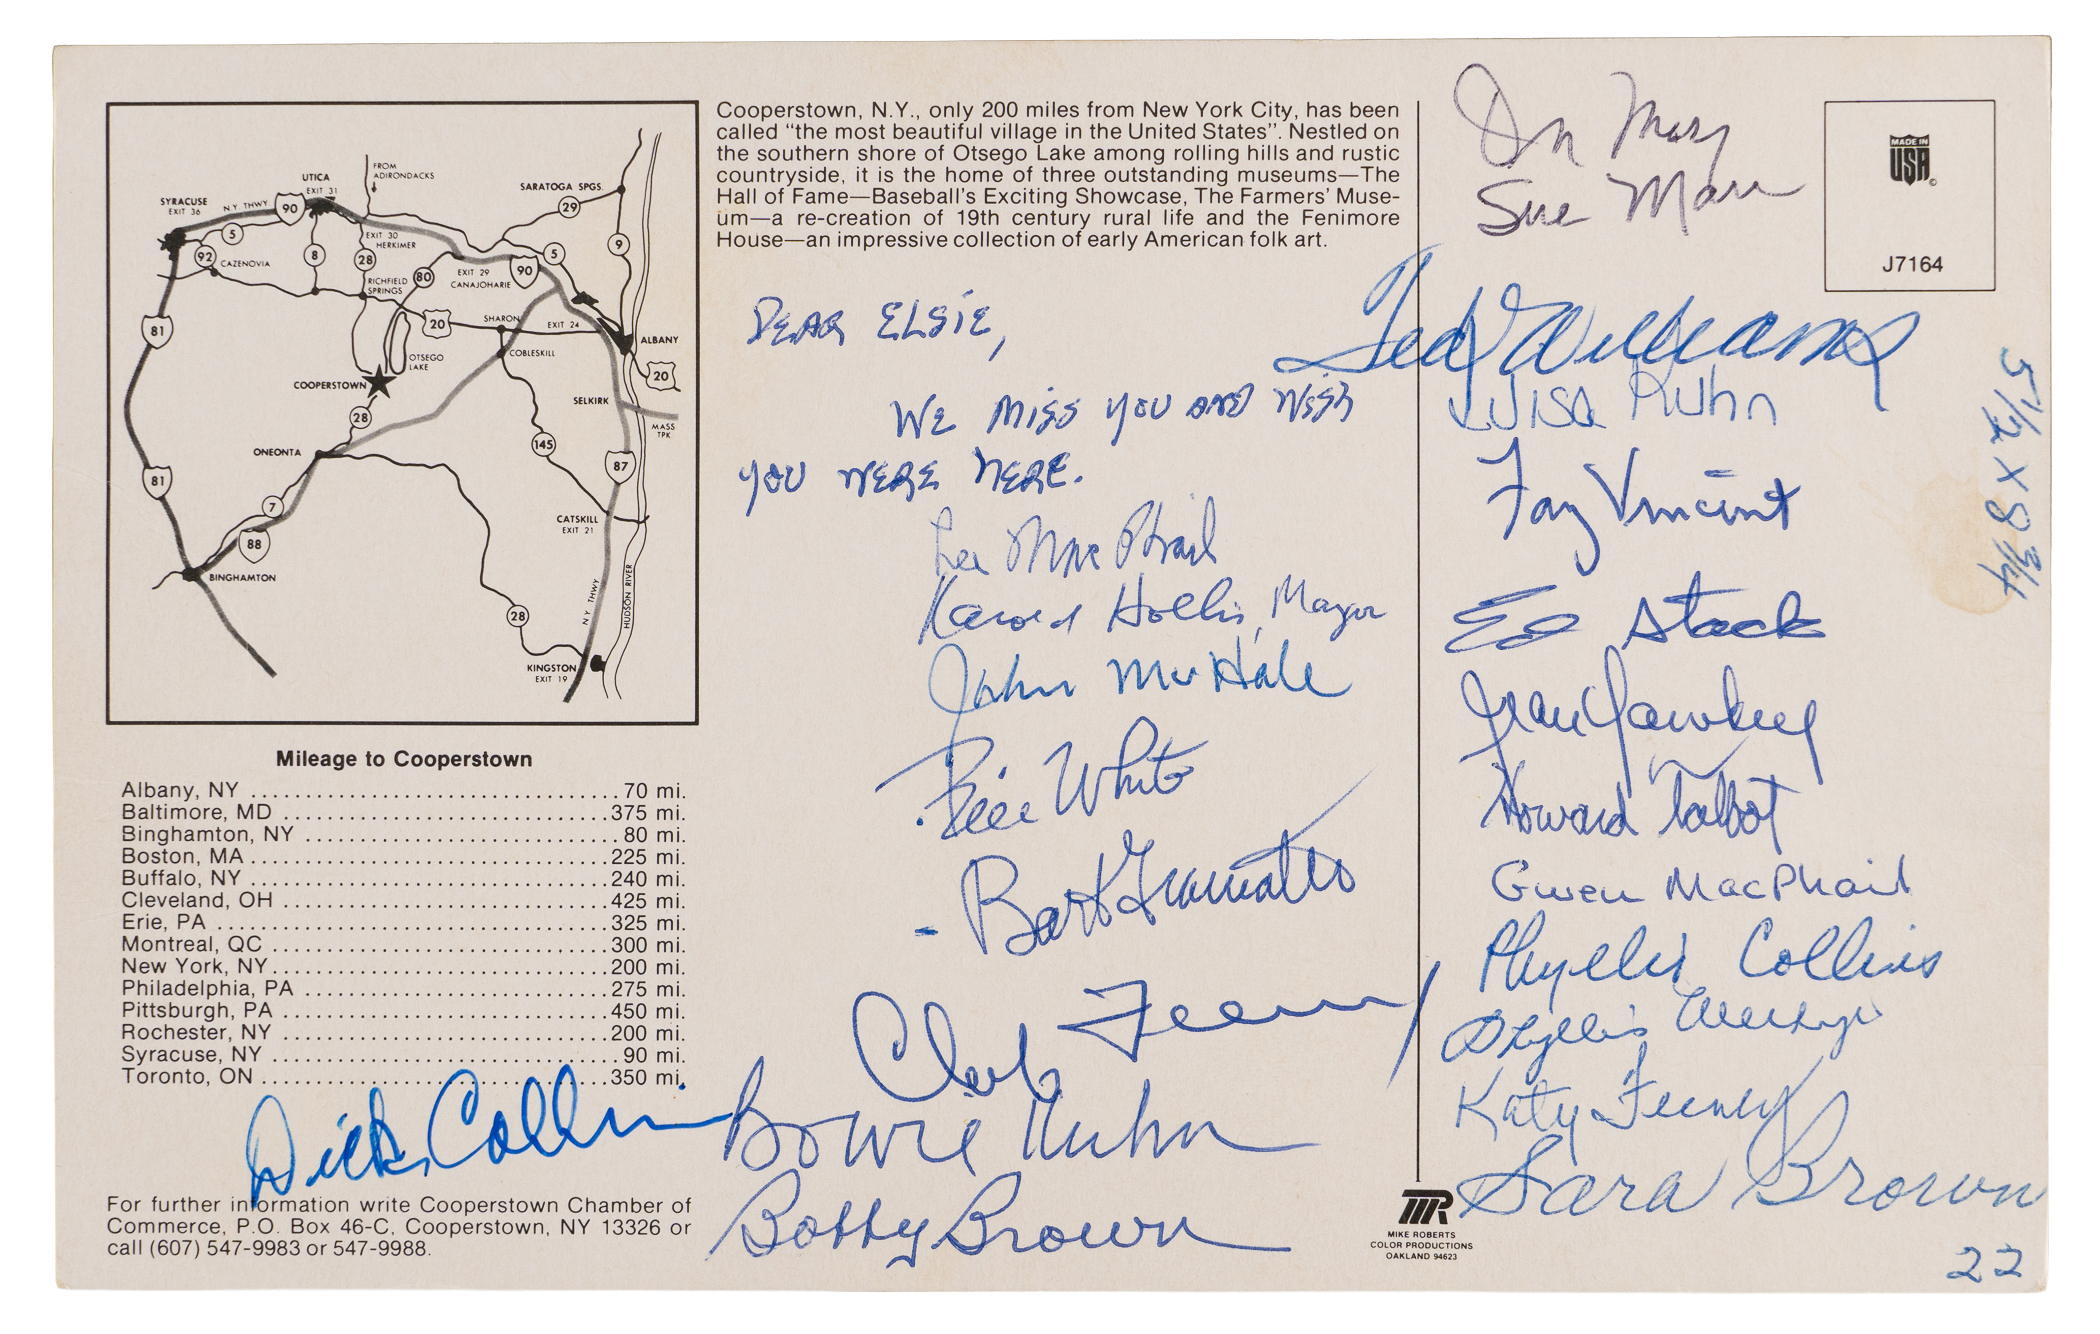 FROM
ADIRONDACKS
UTICA
EXIT 31
SARATOGA SPGS.
SYRACUSE
EXIT 36
N.Y. THWY.
90
29
5
EXIT 30
HERKIMER
9
92
CAZENOVIA
8
28
80
EXIT 29
CANAJOHARIE
90
5
RICHFIELD
SPRINGS
81
20
SHARON
EXIT 24
ALBANY
OTSEGO
LAKE
COBLESKILL
20
COOPERSTOWN
SELKIRK
28
MASS
TPK
145
ONEONTA
87
81
7
CATSKILL
EXIT 21
88
BINGHAMTON
N.Y. THWY
HUDSON RIVER
28
KINGSTON
EXIT 19
Mileage to Cooperstown
Albany, NY 70 mi.
Baltimore, MD 375 mi.
Binghamton, NY 80 mi.
Boston, MA 225 mi.
Buffalo, NY 240 mi.
Cleveland, OH 425 mi.
Erie, PA 325 mi.
Montreal, QC 300 mi.
New York, NY 200 mi.
Philadelphia, PA 275 mi.
Pittsburgh, PA 450 mi.
Rochester, NY 200 mi.
Syracuse, NY 90 mi.
Toronto, ON 350 mi.
Dick Collins
For further information write Cooperstown Chamber of
Commerce, P.O. Box 46-C, Cooperstown, NY 13326 or
call (607) 547-9983 or 547-9988.
Cooperstown, N.Y., only 200 miles from New York City, has been
called “the most beautiful village in the United States”. Nestled on
the southern shore of Otsego Lake among rolling hills and rustic
countryside, it is the home of three outstanding museums—The
Hall of Fame—Baseball’s Exciting Showcase, The Farmers’ Muse-
um—a re-creation of 19th century rural life and the Fenimore
House—an impressive collection of early American folk art.
DEAR ELSIE,
WE MISS YOU AND WISH
YOU WERE HERE.
Lee MacPhail
Harold Hollis, Mayor
John McHale
Bill White
- Bart Giamatti
Chub Feeney
Bowie Kuhn
Bobby Brown
Mary
Sue Marr
MADE IN
USA
J7164
Ted Williams
Luisa Kuhn
Fay Vincent
Ed Stack
Jean Yawkey
Howard Talbot
Gwen MacPhail
Phyllis Collins
Phyllis
Katy Feeney
Sara Brown
5 1/2 x 8 3/4
22
MR
MIKE ROBERTS
COLOR PRODUCTIONS
OAKLAND 94623